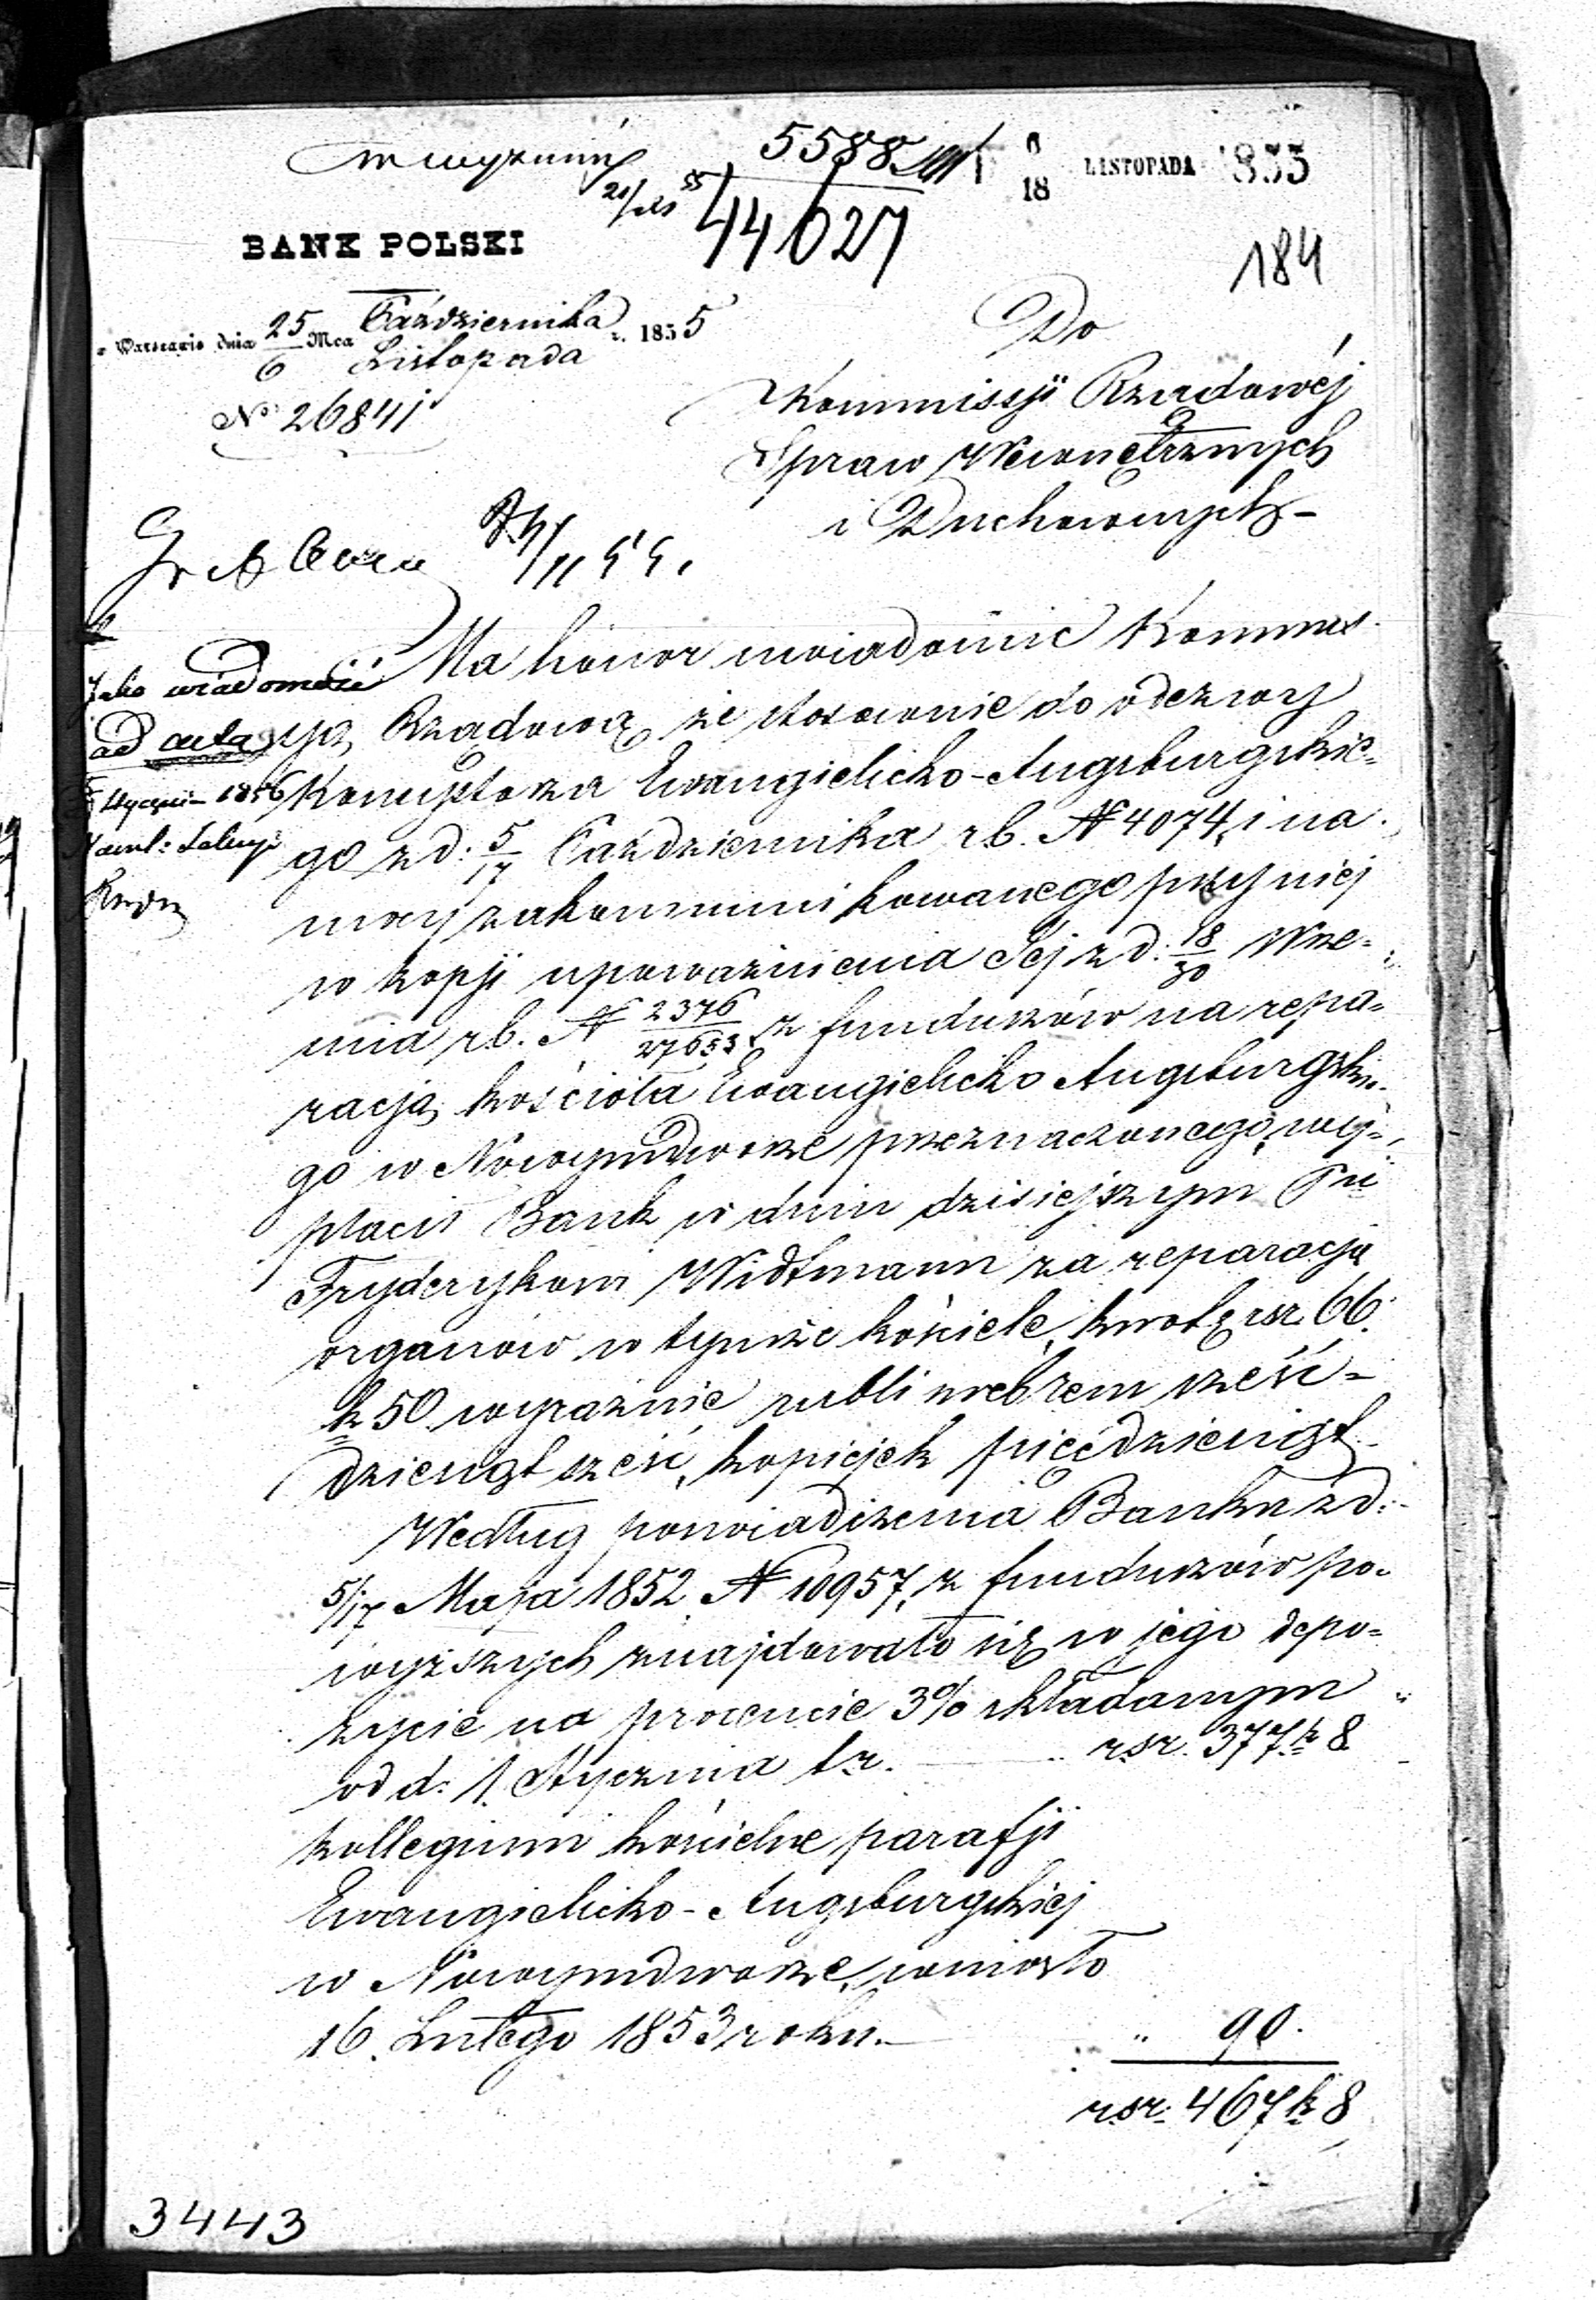 5588
6/18 LISTOPADA 1855
44027
184
BANK POLSKI
w Warszawie dnia 25/6 Mca Października/Listopada r. 1855
No 26841
Do
Kommissji Rządowéj
Spraw Wewnętrznych
i Duchownych
Ma honor uwiadomić Kommis-
syą Rządową, że stosownie do odezwy
Konsystorza Ewangielicko-Augsburgskie-
go z d: 5/17 Października r.b. N 4074, i na
mocy zakommunikowanego przy niej
w kopji upoważnienia Jej z d: 18/30 Wrze-
śnia r.b. N 2376/27653, z funduszów na repa-
racją kościoła Ewangielicko Augsburgskie-
go w Nowymdworze przeznaczonego, wy-
płacił Bank w dniu dzisiejszym Pu
Fryderykowi Widtmann za reparacją
organów w tymże kościele, kwotę rsr. 66
k 50. wyraźnie rubli srebrem sześć-
dziesiąt sześć, kopiejek pięćdziesiąt.
Według poświadczenia Banku z d:
5/17 Maja 1852 N 10957, z funduszów po-
wyższych znajdowało się w jego depo-
zycie na procencie 3% składanym
od d: 1. Stycznia t.r. rsr. 377 k 8
kollegium kościelne parafji
Ewangielicko-Augsburgskiej
w Nowymdworze, wniosło
16. Lutego 1853 roku. " 90.
rsr. 467 k 8
Jako wiadomość
ad acta
Stycznia 1856
3443